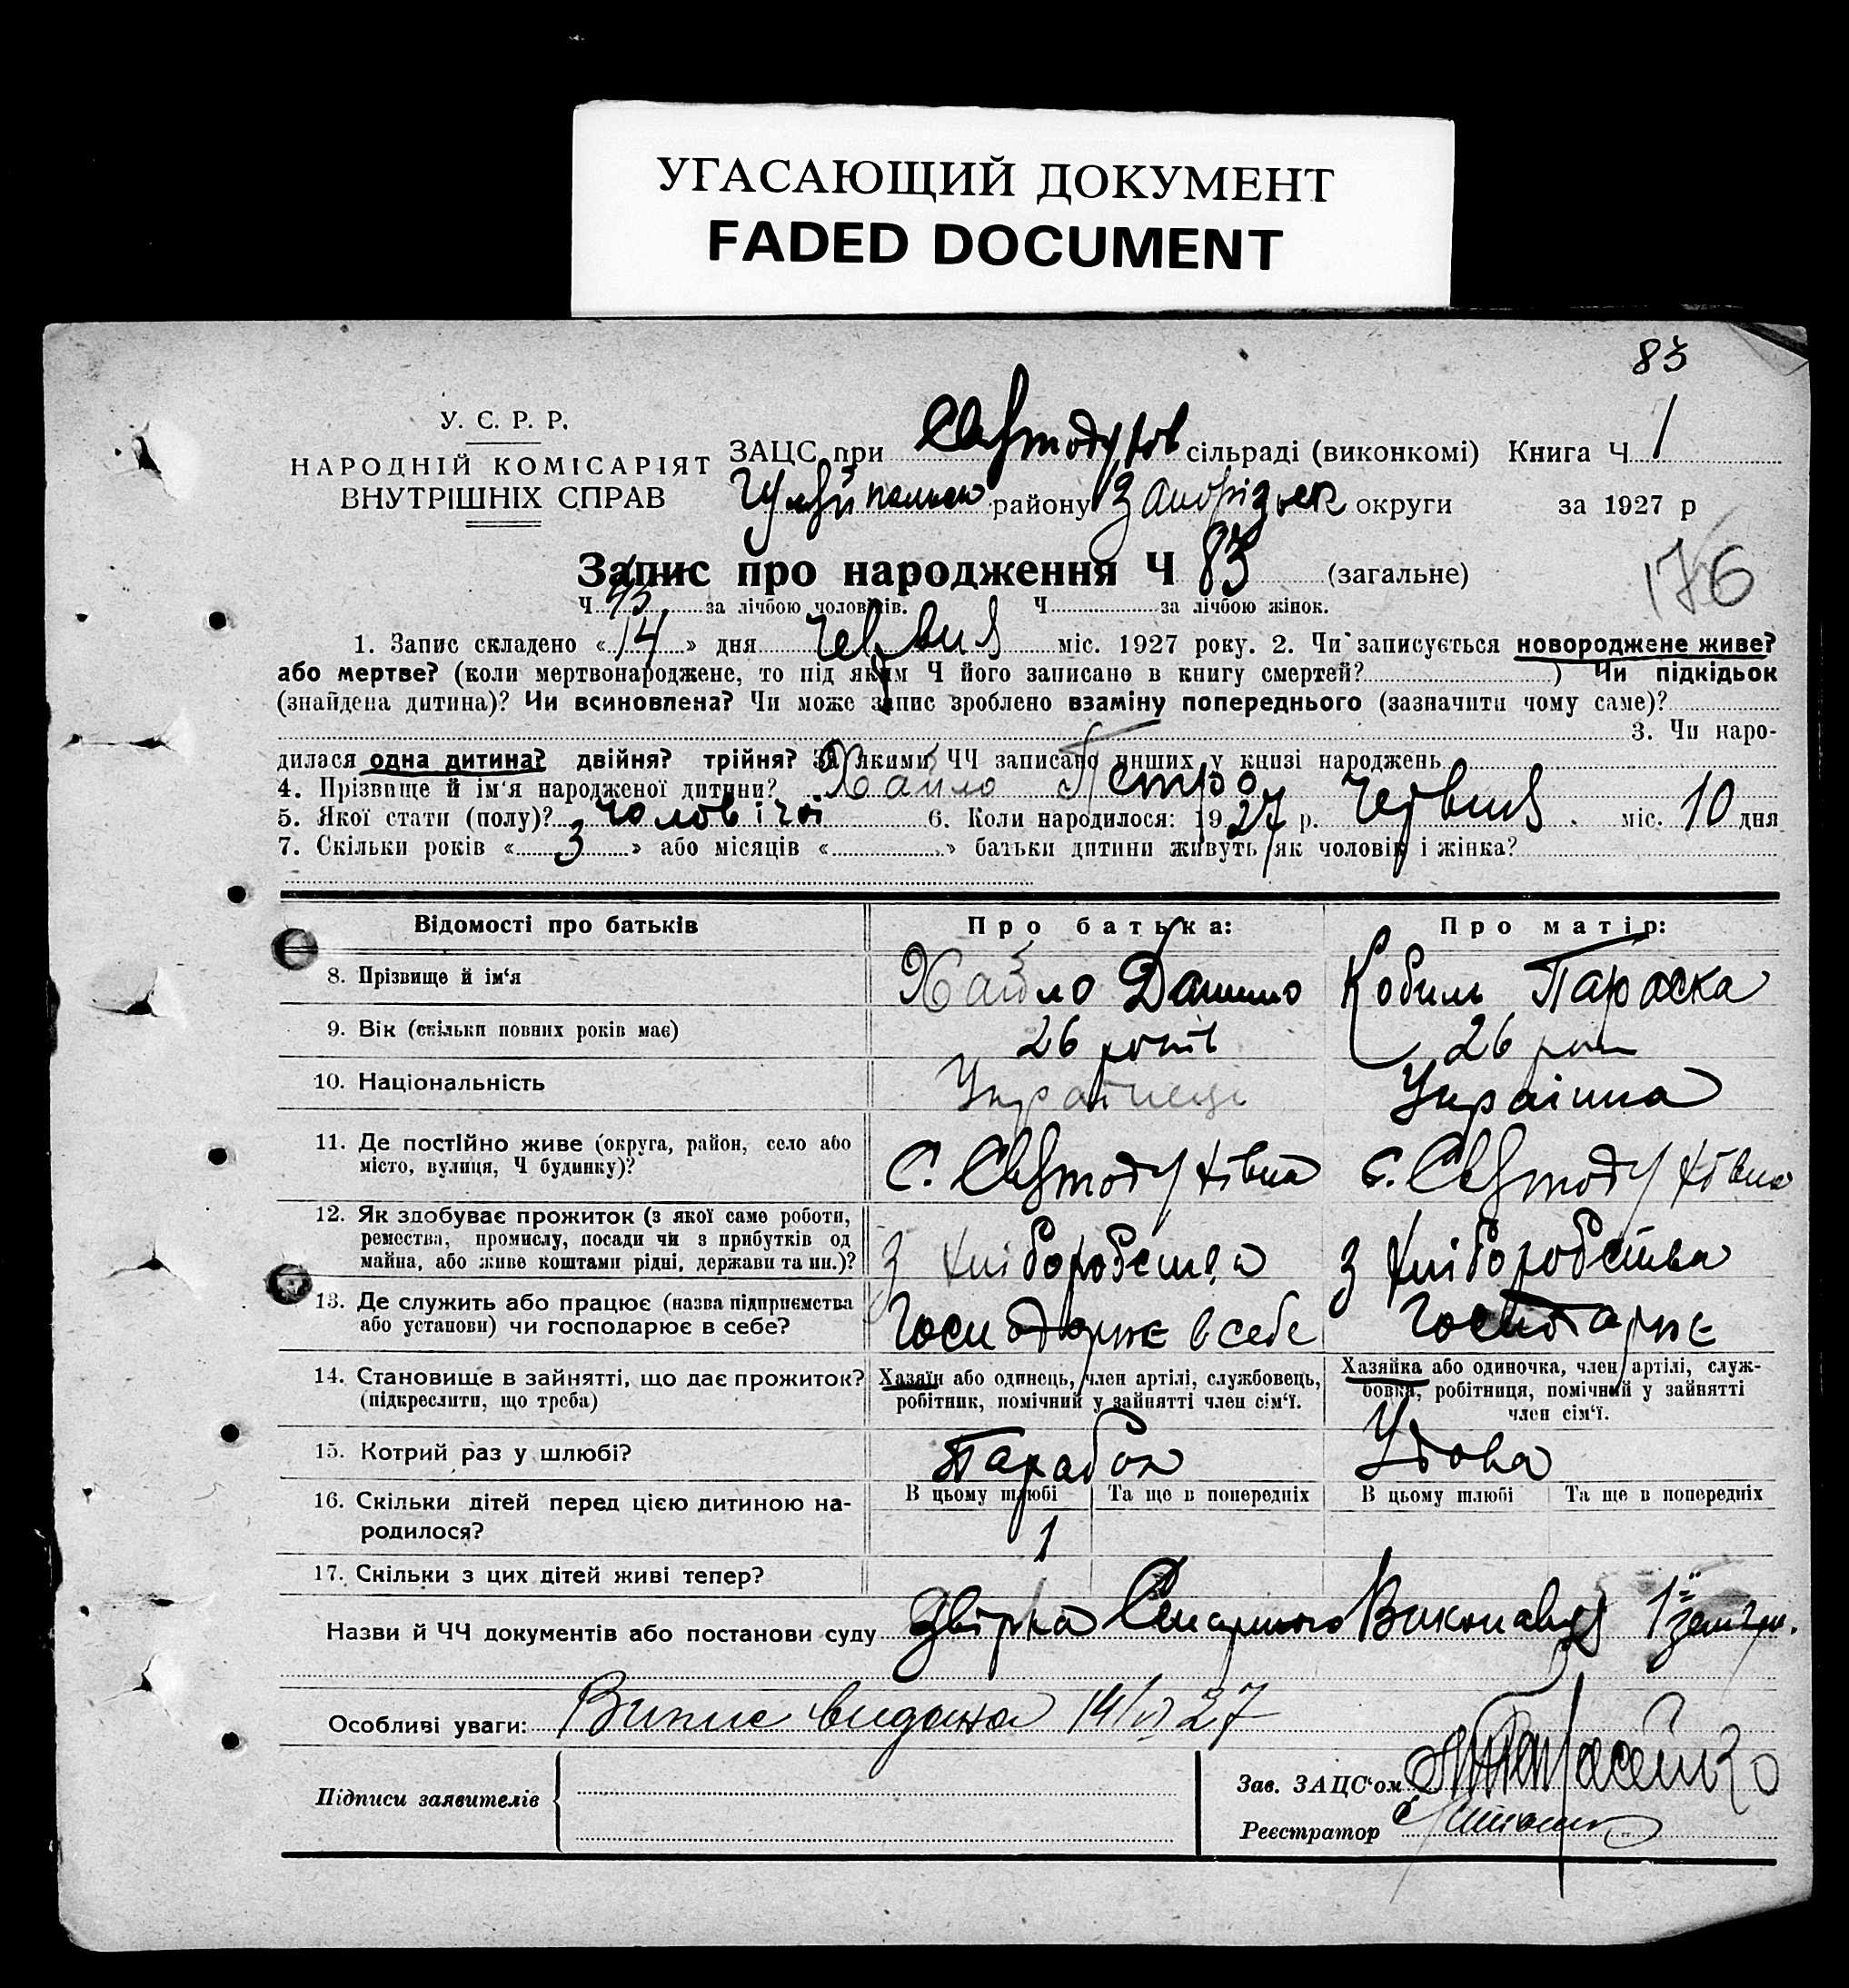 УГАСАЮЩИЙ ДОКУМЕНТ
FADED DOCUMENT
83
У. С. Р. Р.
НАРОДНІЙ КОМІСАРІЯТ
ВНУТРІШНІХ СПРАВ
ЗАЦС при Святодухов сільраді (виконкомі) Книга Ч. 1
Гуляйпольск району Запорізьк округи за 1927 р
Запис про народження Ч 83 (загальне)
176
Ч. 45 за лічбою чоловіків. Ч. за лічбою жінок.
1. Запис складено «14» дня Червня міс. 1927 року. 2. Чи записується новороджене живе?
або мертве? (коли мертвонароджене, то під яким Ч його записано в книгу смертей? ) Чи підкідьок
(знайдена дитина)? Чи всиновлена? Чи може запис зроблено взаміну попереднього (зазначити чому саме)?
3. Чи наро-
дилася одна дитина? двійня? трійня? За якими ЧЧ записано инших у книзі народжень
4. Прізвище й ім'я народженої дитини? Хайло Петро
5. Якої статі (полу)? чоловічої 6. Коли народилося: 1927 р. Червня міс. 10 дня
7. Скільки років «3» або місяців « » батьки дитини живуть як чоловік і жінка?
Відомості про батьків Про батька: Про матір:
8. Прізвище й ім'я Хайло Данило Кобиль Параска
9. Вік (скільки повних років має) 26 років 26 рок
10. Національність Українець Українка
11. Де постійно живе (округа, район, село або
місто, вулиця, Ч будинку)? С. Святодухівка с. Святодухівка
12. Як здобуває прожиток (з якої саме роботи,
ремества, промислу, посади чи з прибутків од
майна, або живе коштами рідні, держави та ин.)? З хліборобства З хліборобства
13. Де служить або працює (назва підприємства
або установи) чи господарює в себе? Господарює в себе Господарює
14. Становище в зайнятті, що дає прожиток?
(підкреслити, що треба)
Хазяїн або одинець, член артілі, службовець,
робітник, помічний у зайнятті член сім'ї.
Хазяйка або одиночка, член артілі, служ-
бовка, робітниця, помічний у зайнятті
член сім'ї.
15. Котрий раз у шлюбі? Парабок Удова
16. Скільки дітей перед цією дитиною на-
родилося?
В цьому шлюбі Та ще в попередніх В цьому шлюбі Та ще в попередніх
1
17. Скільки з цих дітей живі тепер?
Назви й ЧЧ документів або постанови суду Двірка Старшого Виконавця 1ї
Особливі уваги: Випис видана 14/VI 27
Підписи заявителів
Зав. ЗАЦС'ом
Реєстратор